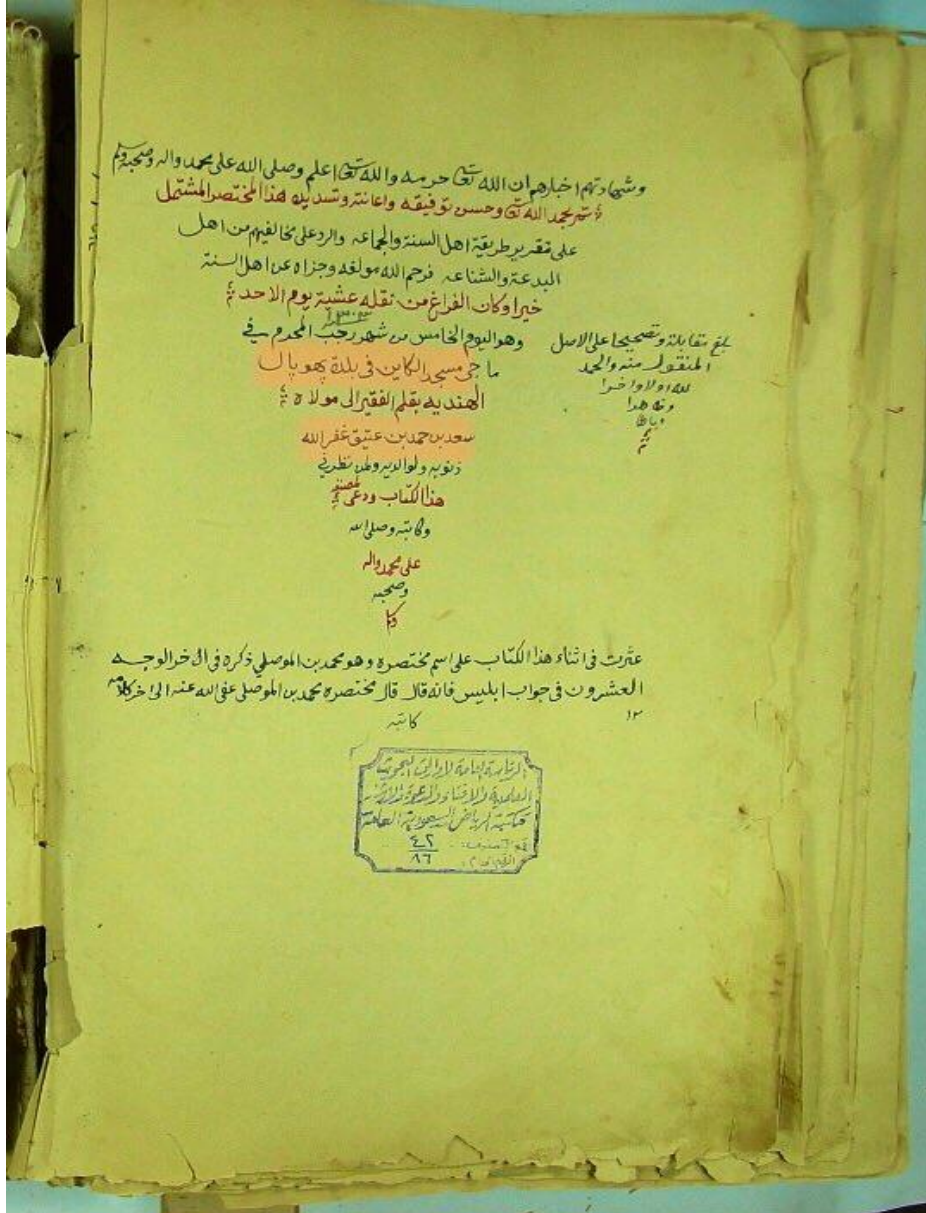 وشهادتهم اخبارهم ان الله تعالى حرمه والله تعالى اعلم وصلى الله على محمد واله وصحبه وسلم
تم بحمد الله تعالى وحسن توفيقه واعانته وتسديده هذا المختصر المشتمل
على تقرير طريقة اهل السنة والجماعه والرد على مخالفيهم من اهل
البدعة والشناعه فرحم الله مولفه وجزاه عن اهل السنة
خيرا وكان الفراغ من نقله عشية يوم الاحد
١٣٠٣
وهو اليوم الخامس من شهر رجب المحرم في
ماجي مسجد الكاين في بلدة پهوپال
الهنديه بقلم الفقير الى مولاه
سعد بن حمد بن عتيق غفر الله
ذنوبه ولوالديه ولمن نظر في
هذا الكتاب ودعى لمصنفه
وكاتبه وصلى الله
على محمد واله
وصحبه
وسلم
بلغ مقابلة وتصحيحا على الاصل
المنقول منه والحمد
لله اولا واخرا
وظاهرا
وباطنا
عثرت في اثناء هذا الكتاب على اسم مختصره وهو محمد بن الموصلي ذكره في اخر الوجه
العشرون في جواب ابليس فانه قال قال مختصره محمد بن الموصلي عفى الله عنه الى اخر كلامه
١٢
كاتبه
الرئاسة العامة لادارات البحوث
العلمية والافتاء والدعوة والارشاد
مكتبة الرياض السعودية العامة
٤٢
٨٦